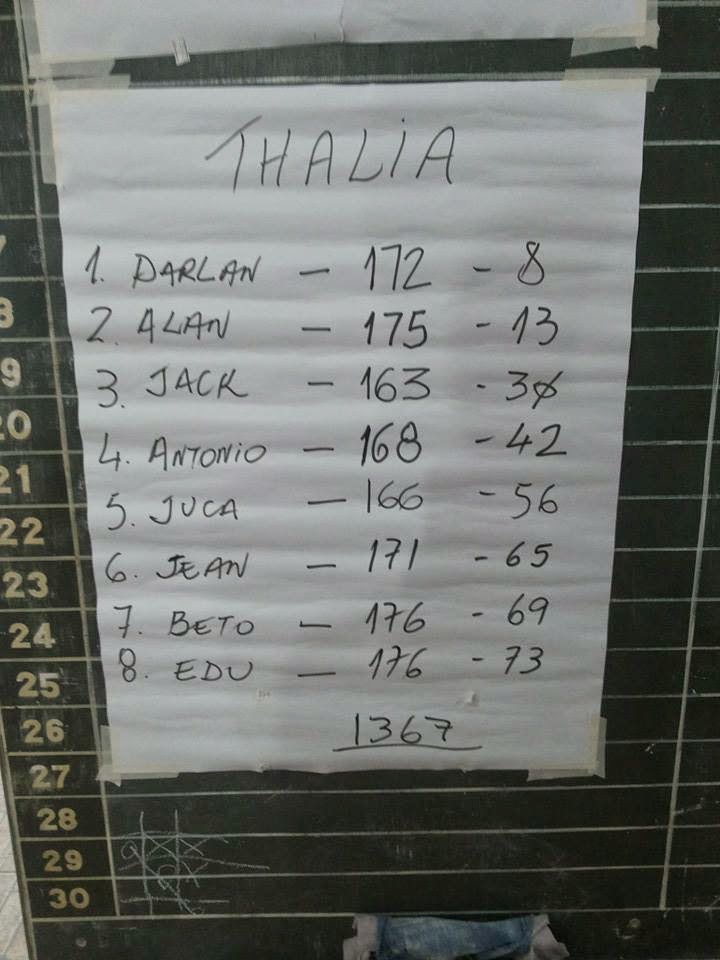 THALIA
1. DARLAN – 172 - 8
2. ALAN – 175 - 13
3. JACK – 163 - 30
4. ANTONIO – 168 - 42
5. JUCA – 166 - 56
6. JEAN – 171 - 65
7. BETO – 176 - 69
8. EDU – 176 - 73
1367
8
9
20
21
22
23
24
25
26
27
28
29
30